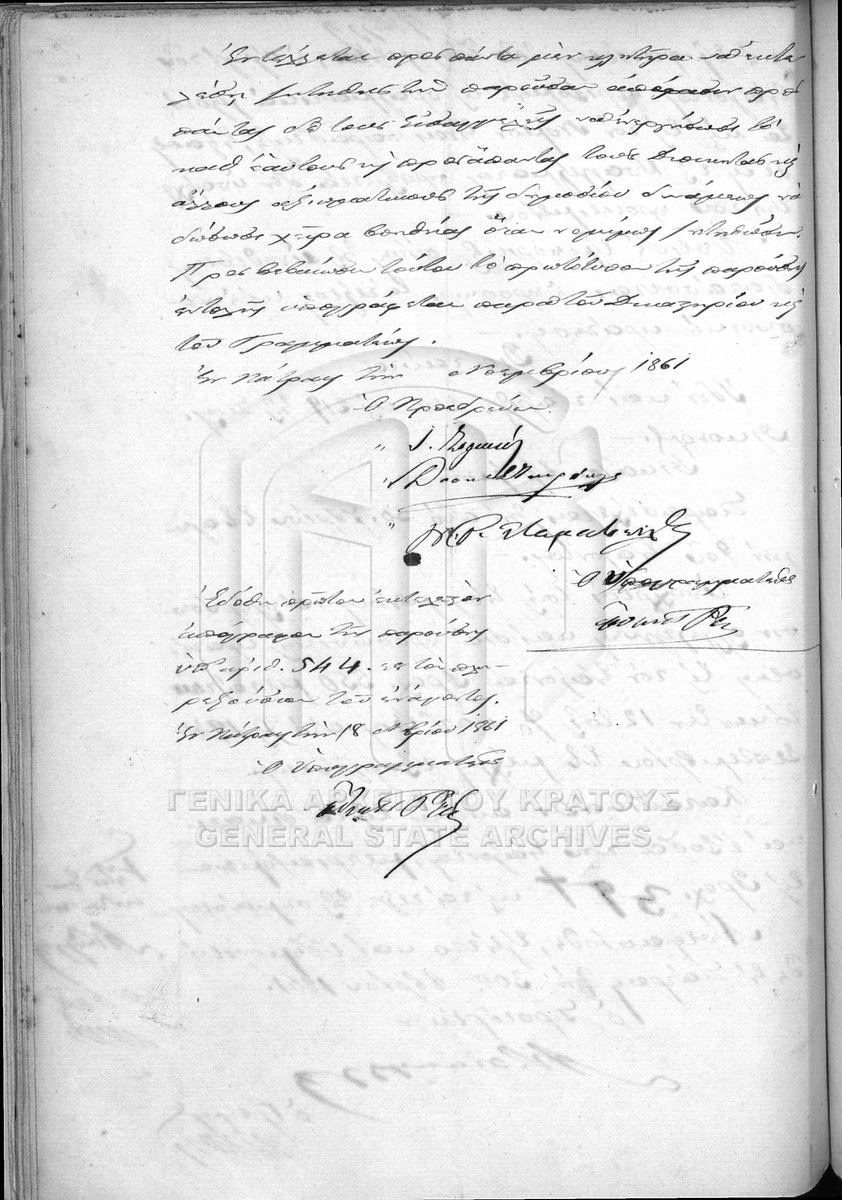 Ἐντέλλεται πρὸς πάντα μὲν κλητῆρα νὰ ἐκτε-
λέσῃ ζητηθεὶς τὴν παροῦσαν ἀπόφασιν πρὸς
πάντας δὲ τοὺς Εἰσαγγελεῖς νὰ ἐνεργήσωσι τὸ
καθ' ἑαυτοὺς καὶ πρὸς ἅπαντας τοὺς Διοικητὰς καὶ
ἄλλους ἀξιωματικοὺς τῆς δημοσίου δυνάμεως νὰ
δώσωσι χεῖρα βοηθείας ὅταν νομίμως ζητηθῶσι.
Πρὸς βεβαίωσιν τούτου τὸ πρωτότυπον τῆς παρούσης
ἐντολῆς ὑπογράφεται παρὰ τοῦ Δικαστηρίου καὶ
τοῦ Γραμματέως.
Ἐν Πάτραις τὴν Νοεμβρίου 1861
Ὁ Προεδρεύων
Ὁ Ὑπογραμματεύς
Ἐδόθη πρῶτον ἐκτελεστὸν
ἀπόγραφον τῆς παρούσης
ὑπ' ἀριθ. 544. εἰς τὸν πλη-
ρεξούσιον τοῦ ἐνάγοντος.
Ἐν Πάτραις τὴν 18 Νβρίου 1861
Ὁ Ὑπογραμματεύς
ΓΕΝΙΚΑ ΑΡΧΕΙΑ ΤΟΥ ΚΡΑΤΟΥΣ
GENERAL STATE ARCHIVES